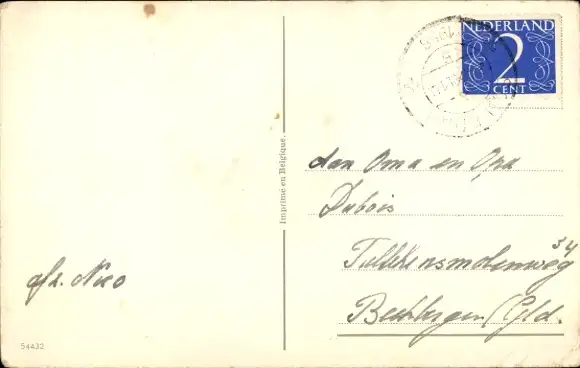 NEDERLAND
2
CENT
Imprimé en Belgique.
Aan Oma en Opa
Dubois
Tullekensmolenweg 34
Beekbergen/Gld.
afz. Nico
54432